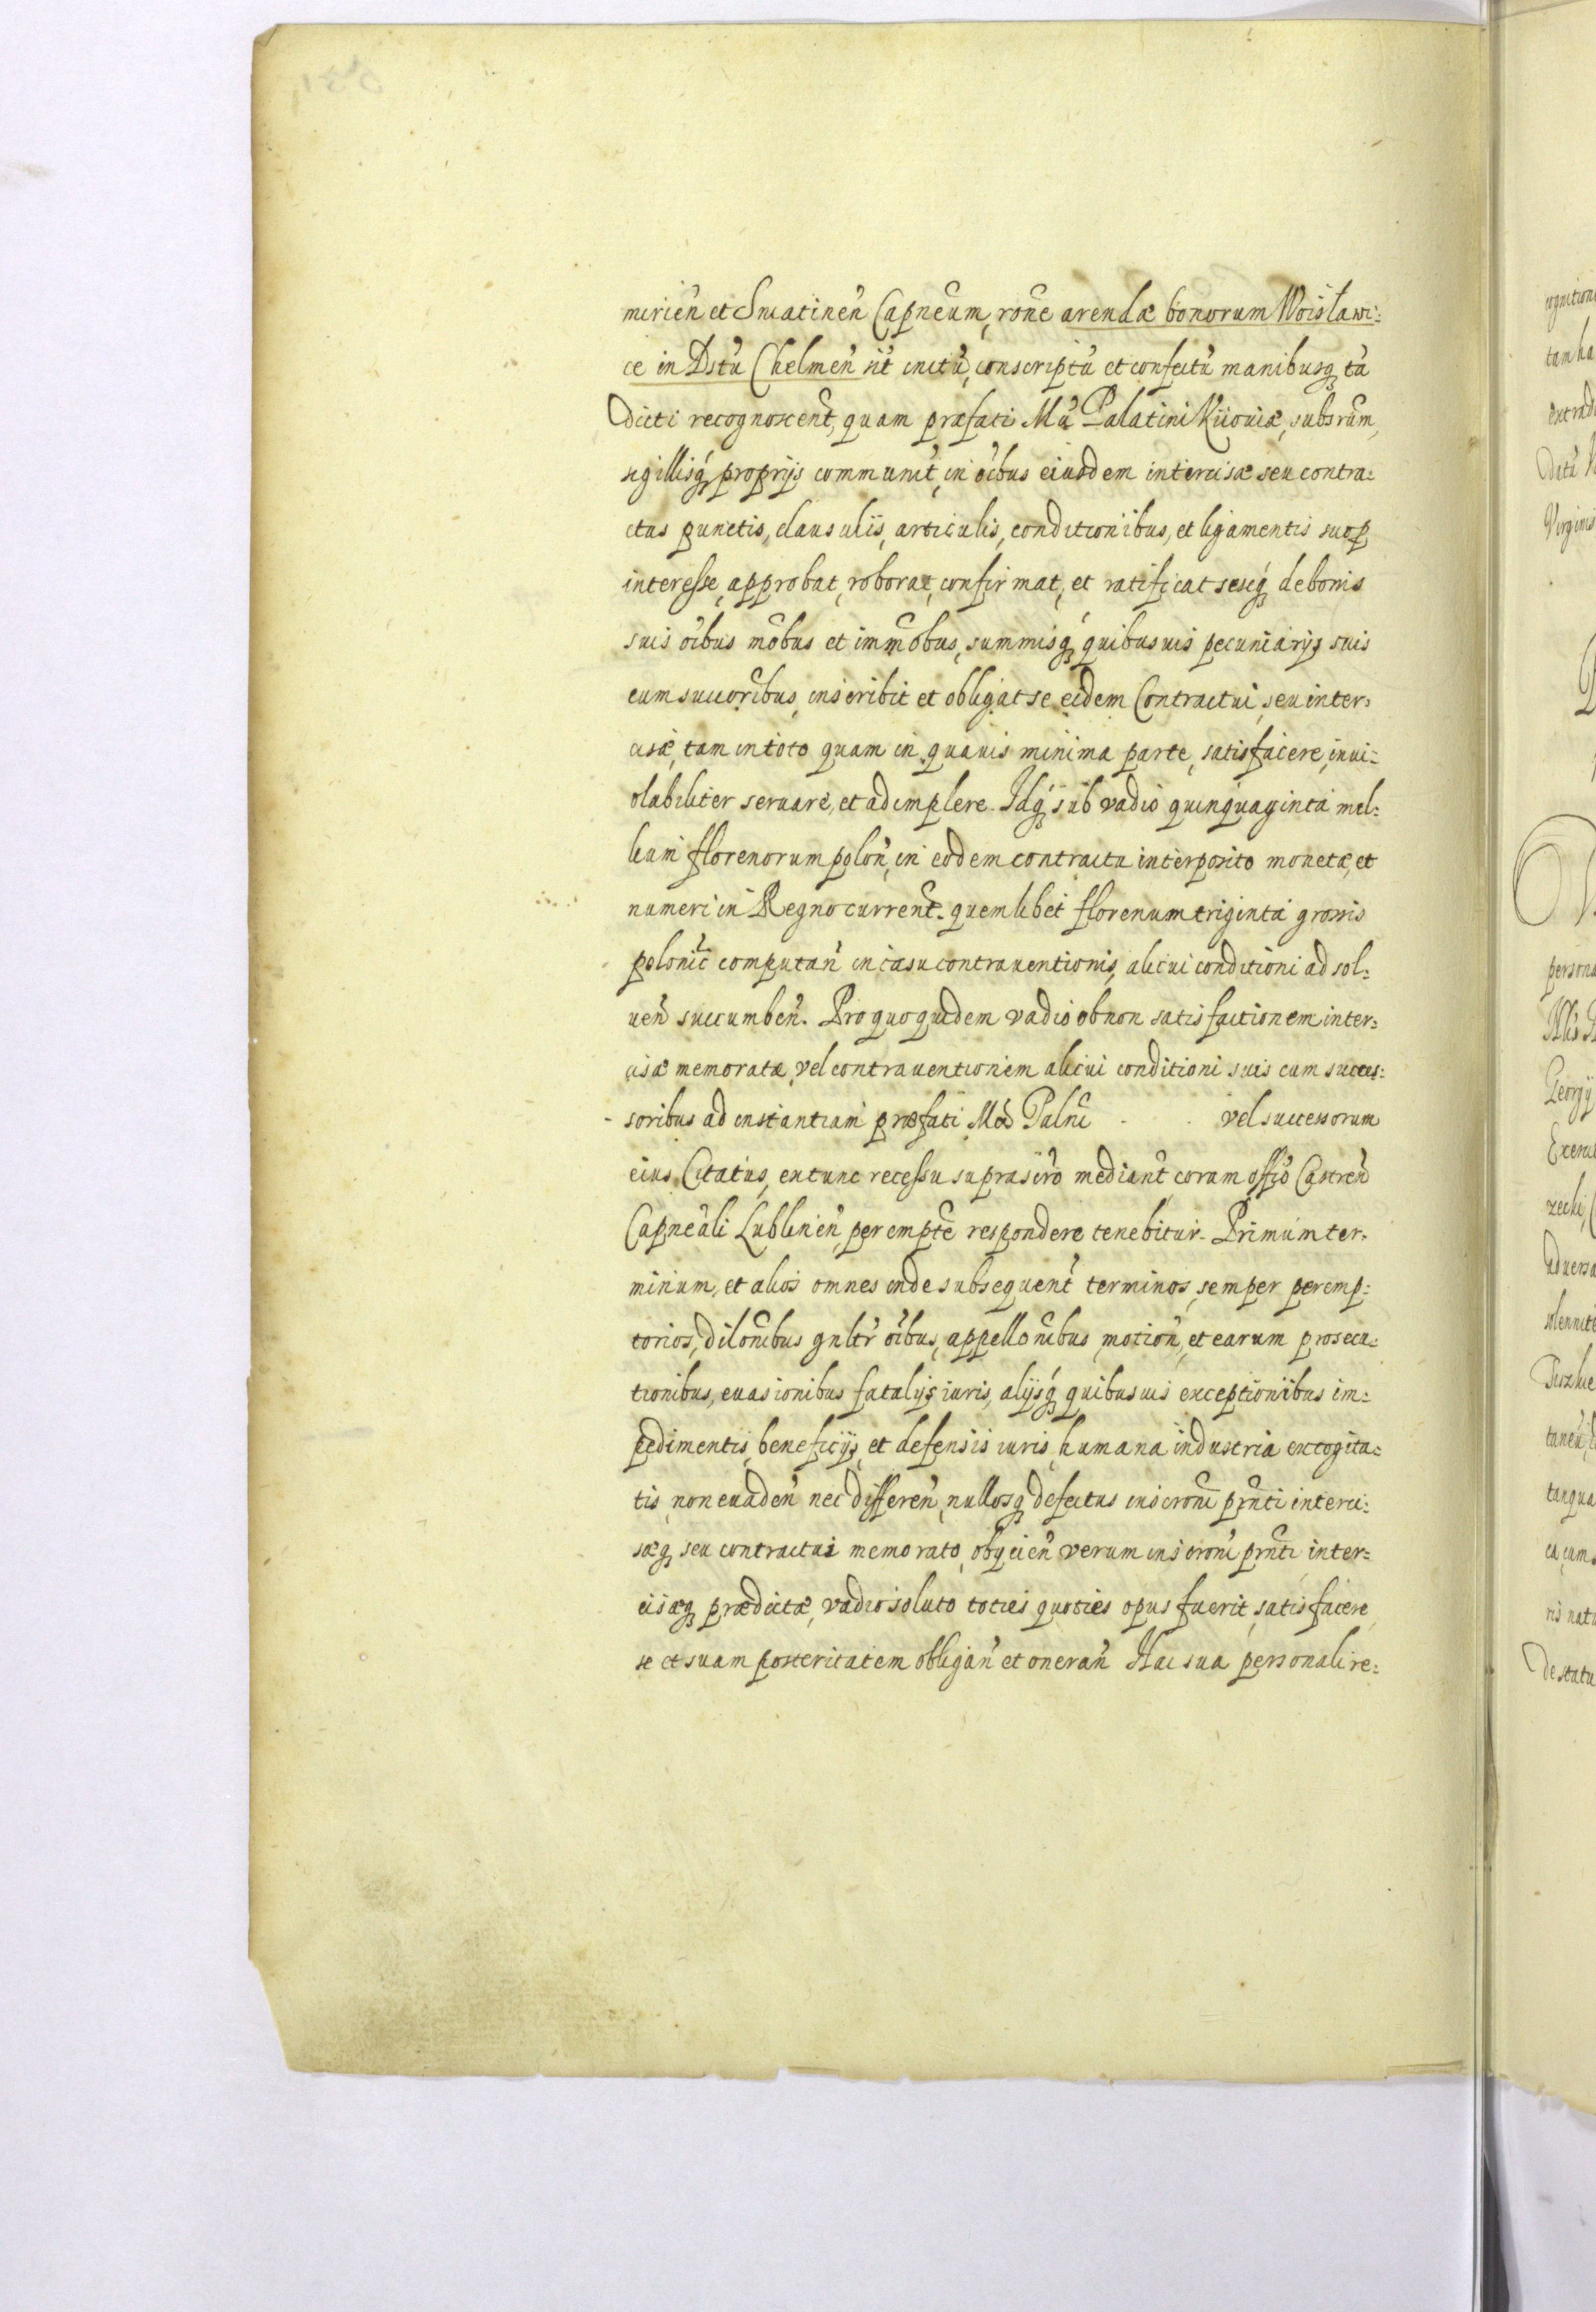 mirien̄ et Sniatinen̄ Capneum, rone arendæ bonorum Woisławi:
ce in Dstu Chelmen̄ sit initu, conscriptu et confectu manibusq tā
dicti recognoscent, quam præfati Mci Palatini Kiioviæ, subsrum,
sigillisq proprijs communit, in oibus eiusdem intercisæ seu contra:
ctus punctis, clausulis, articulis, conditionibus, et ligamentis suop
interesse, approbat, roborat, confirmat, et ratificat seseq de bonis
suis oibus mobus et immobus, summisq quibusuis pecuniarijs suis
cum succoribus, inscribit et obligat se eidem Contractui, seu inter:
cisæ, tam in toto quam in quauis minima parte, satisfacere, inui:
olabiliter seruare, et adimplere. Idq sub vadio quinquaginta mil:
lium florenorum polon̄, in eodem contractu interposito monetæ, et
numeri in Regno current. quemlibet florenum triginta grossis
polonic computan̄ in casu contrauentionis, alicui conditioni ad sol:
uen̄ succumben̄. Pro quo quidem vadio ob non satisfactionem inter:
cisæ memoratæ, vel contrauentionem alicui conditioni suis cum succes:
soribus ad instantiam præfati Mci Palni vel successorum
eius Citatus, extunc recessu suprascro mediant coram offio Castren̄
Capneali Lublinen̄, perempte respondere tenebitur. Primum ter:
minum, et alios omnes inde subsequent terminos, semper peremp:
torios, dilonibus gnltr oibus, appellonibus motion̄, et earum prosecu:
tionibus, euasionibus fatalijs iuris, alijsq quibusuis exceptionibus im:
pedimentis, beneficijs, et defensis iuris, humana industria excogita:
tis, non euaden̄ nec differen̄, nullosq defectus inscroni prnti interci:
sæq seu contractui memorato, obijcien̄ verum inscroni prnti inter:
cisæq prædictæ, vadio soluto toties quoties opus fuerit, satisfacere
se et suam posteritatem obligan̄ et oneran̄ Hac sua personali re: